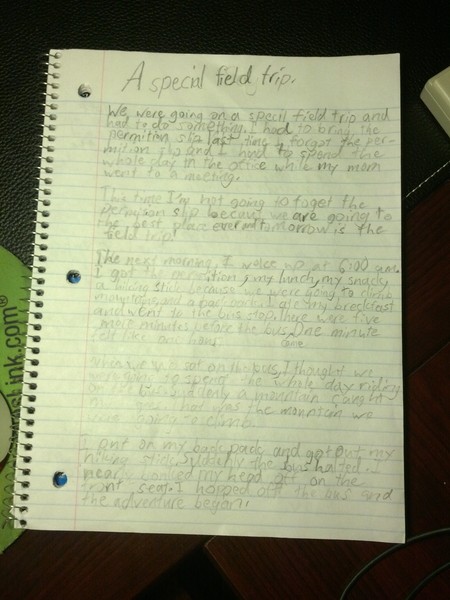 A special field trip.
We were going on a specil field trip and
had to do something. I had to bring the
permition slip last time I forgot the per-
mition slip and I hand to spend the
whole day in the office while my mom
went to a meeting.
This time I'm not going to foget the
permition slip becaus we are going to
the best place ever and tomorrow is the
field trip!
The next morning, I woke up at 6:00 a.m.
I got the permition, my lunch, my snack,
a hiking stick because we were going to climb
mountains, and a pack. I ate my breckfast
and went to the bus stop. There were five
more minutes before the bus came. One minute
felt like one hour.
When we sat on the bus, I thought we
were going to spend the whole day riding
on the bus. Suddenly a mountain caught
my was the mountain we
were going to climb.
I put on my back pack and got out my
hiking stick. Suddenly the bus halted. I
nearly my head off on the
front seat. I hopped off the bus and
the adventure began!
ink.com®